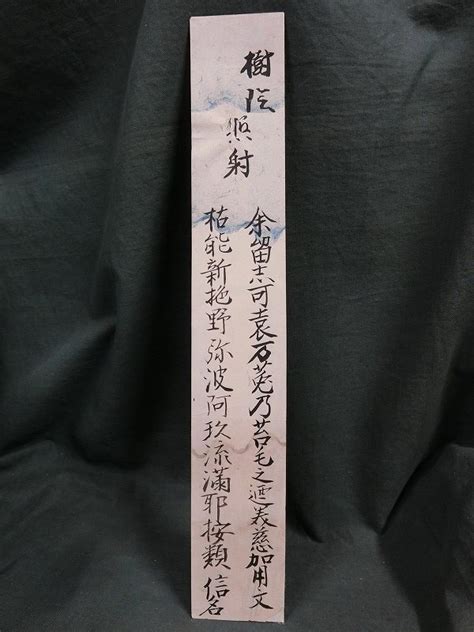 樹陰照射
余留志可袁万菟乃苔毛之迺美慈加用文
枯能新艳野弥波阿玖流满耶按類 信名